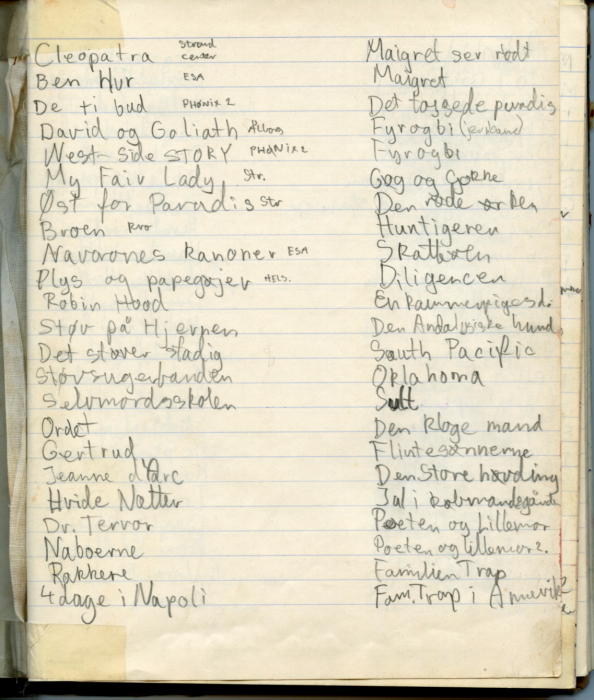 Cleopatra Strand center
Ben Hur ESA
De ti bud PHØNIX 2
David og Goliath
West-side STORY PHØNIX 2
My Fair Lady Str.
Øst for Paradis Str
Broen
Navarones kanoner ESA
Plys og papegøjer HELS.
Robin Hood
Støv på Hjernen
Det støver stadig
Støvsugerbanden
Selvmordsskolen
Ordet
Gertrud
Jeanne d'Arc
Hvide Nætter
Dr. Terror
Naboerne
Rakkere
4 dage i Napoli
Maigret ser rødt
Maigret
Det tossede paradis
Fyrogbi
Fyrogbi
Gøg og Gokke
Den røde
Huntigeren
Skatteøen
Diligencen
En kammerpiges d.
Den Andalusiske hund
South Pacific
Oklahoma
Sult
Den kloge mand
Flintesønnerne
Den Store høvding
Jul i købmandsgården
Poeten og Lillemor
Poeten og Lillemor 2.
Familien Trap
Fam. Trap i Amerika